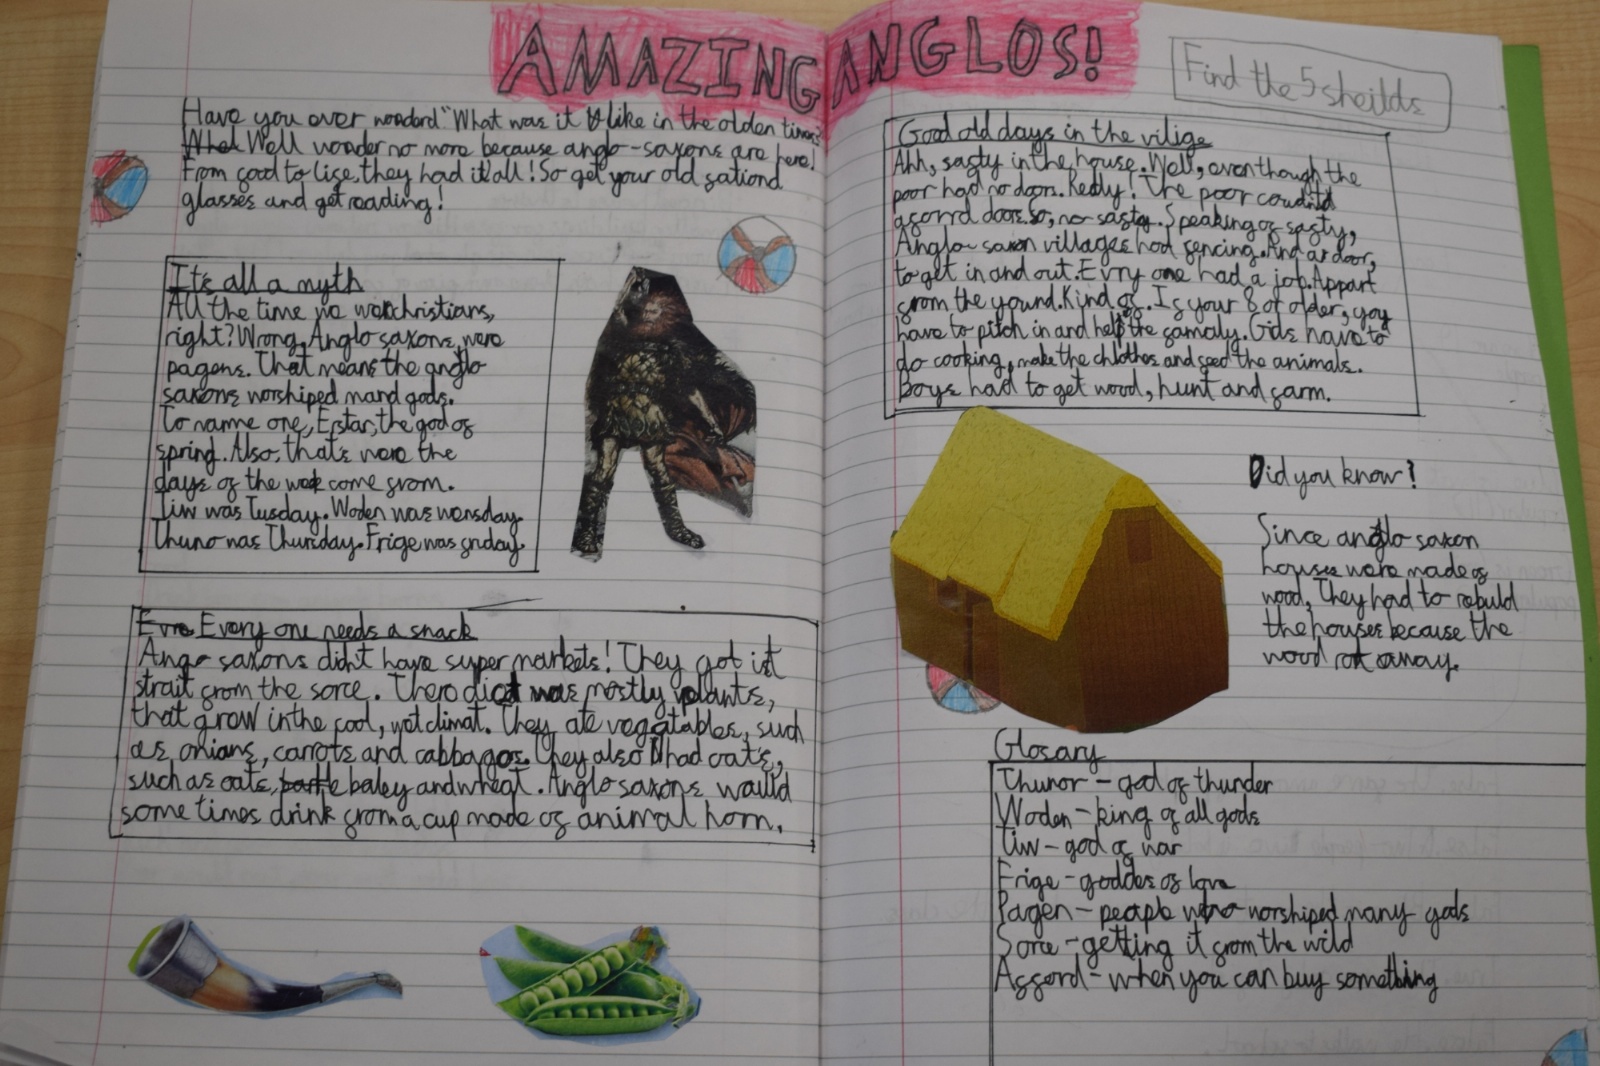 AMAZING ANGLOS!
Find the 5 sheilds
Have you ever wonderd "What was it like in the olden times?
What Well wonder no more because anglo-saxons are here!
From food to life, they had it all! So get your old
glasses and get reading!
It's all a myth
All the time we were christians,
right? Wrong, Anglo saxons were
pagens. That means the anglo
saxons worshiped many gods.
To name one, Erstar, the god of
spring. Also, that's were the
days of the week come from.
Tiw was Tusday. Woden was wensday.
Thuno was Thursday. Frige was friday.
Evre Every one needs a snack
Anglo saxons didn't have super markets! They got it
strait from the sorce. There diet was mostly plants,
that grow in the cool, wet climat. They ate vegatables, such
as onians, carrots and cabbages. They also had oats,
such as oats, barley and wheat. Anglo saxons would
some times drink from a cup made of animal horn.
Good old days in the vilige
Ahh, safty in the house. Well, even though the
poor had no doors. Really! The poor
afford doors. So, no safty. Speaking of safty,
Anglo-saxon villages had fencing. And a door,
to get in and out. Evry one had a job. Appart
from the yound. Kind of. If your 8 or older, you
have to pitch in and help the famaly. Girls have to
do cooking, make the chlothes and feed the animals.
Boys had to get wood, hunt and farm.
Did you know?
Since anglo saxon
houses were made of
wood, They had to rebuld
the houses because the
wood rot away.
Glosary
Thunor - god of thunder
Woden - king of all gods
Tiw - god of war
Frige - goddes of love
Pagen - people who worshiped many gods
Sorce - getting it from the wild
Afford - when you can buy something